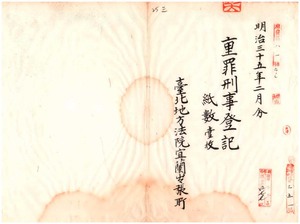 明治三十五年二月分
重罪刑事登記
紙數壹枚
臺北地方法院宜蘭出張所